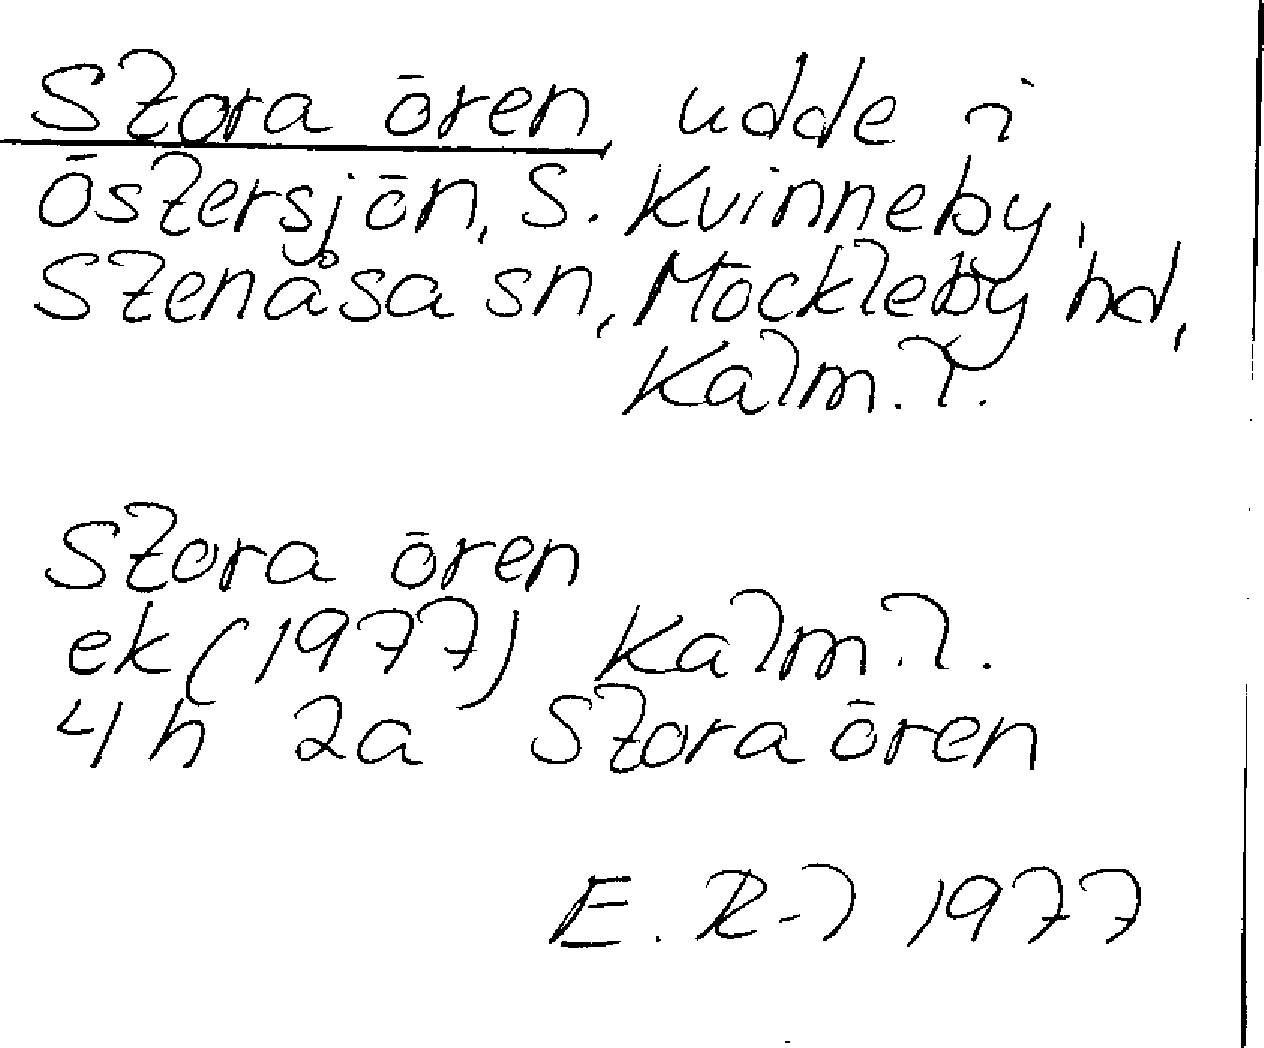 Stora ören, udde i
Östersjön, S. Kvinneby,
Stenåsa sn, Möckleby hd,
Kalm. l.
Stora ören
ek (1977) Kalm. l.
4 h 2a Stora ören
E. R-l 1977